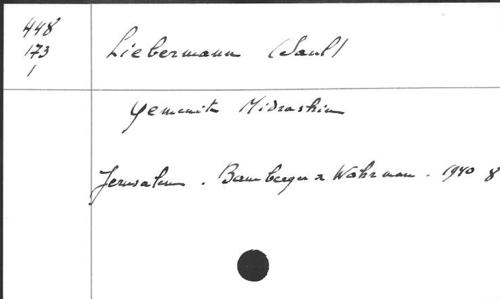 448
173
1
Liebermann (Saul)
Yemenite Midrashim
Jerusalem. Bamberger & Wahrman. 1940 8